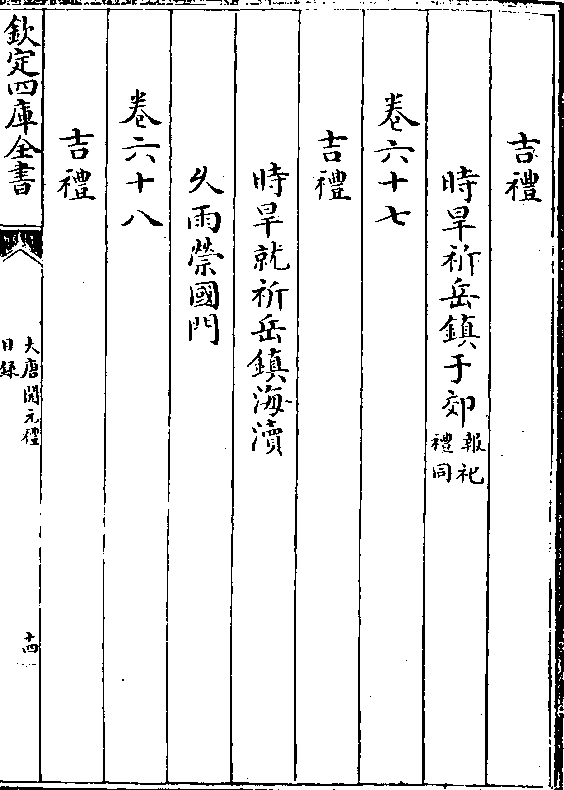 吉禮
時旱祈岳鎮于郊報祀禮同
卷六十七
吉禮
時旱就祈岳鎮海瀆
久雨禜國門
卷六十八
吉禮
欽定四庫全書
大唐開元禮
目録
十四